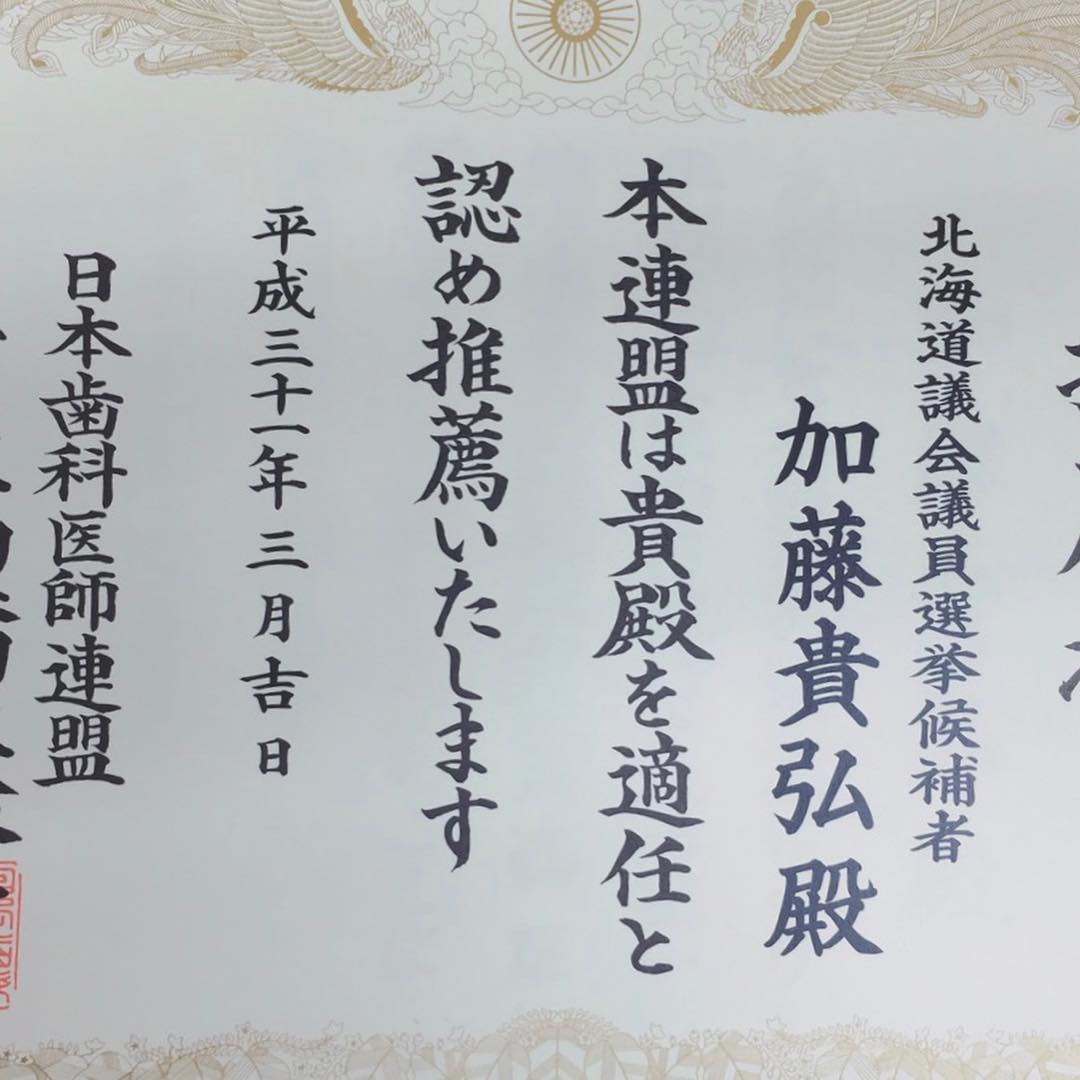 北海道議会議員選挙候補者
加藤貴弘殿
本連盟は貴殿を適任と
認め推薦いたします
平成三十一年三月吉日
日本歯科医師連盟